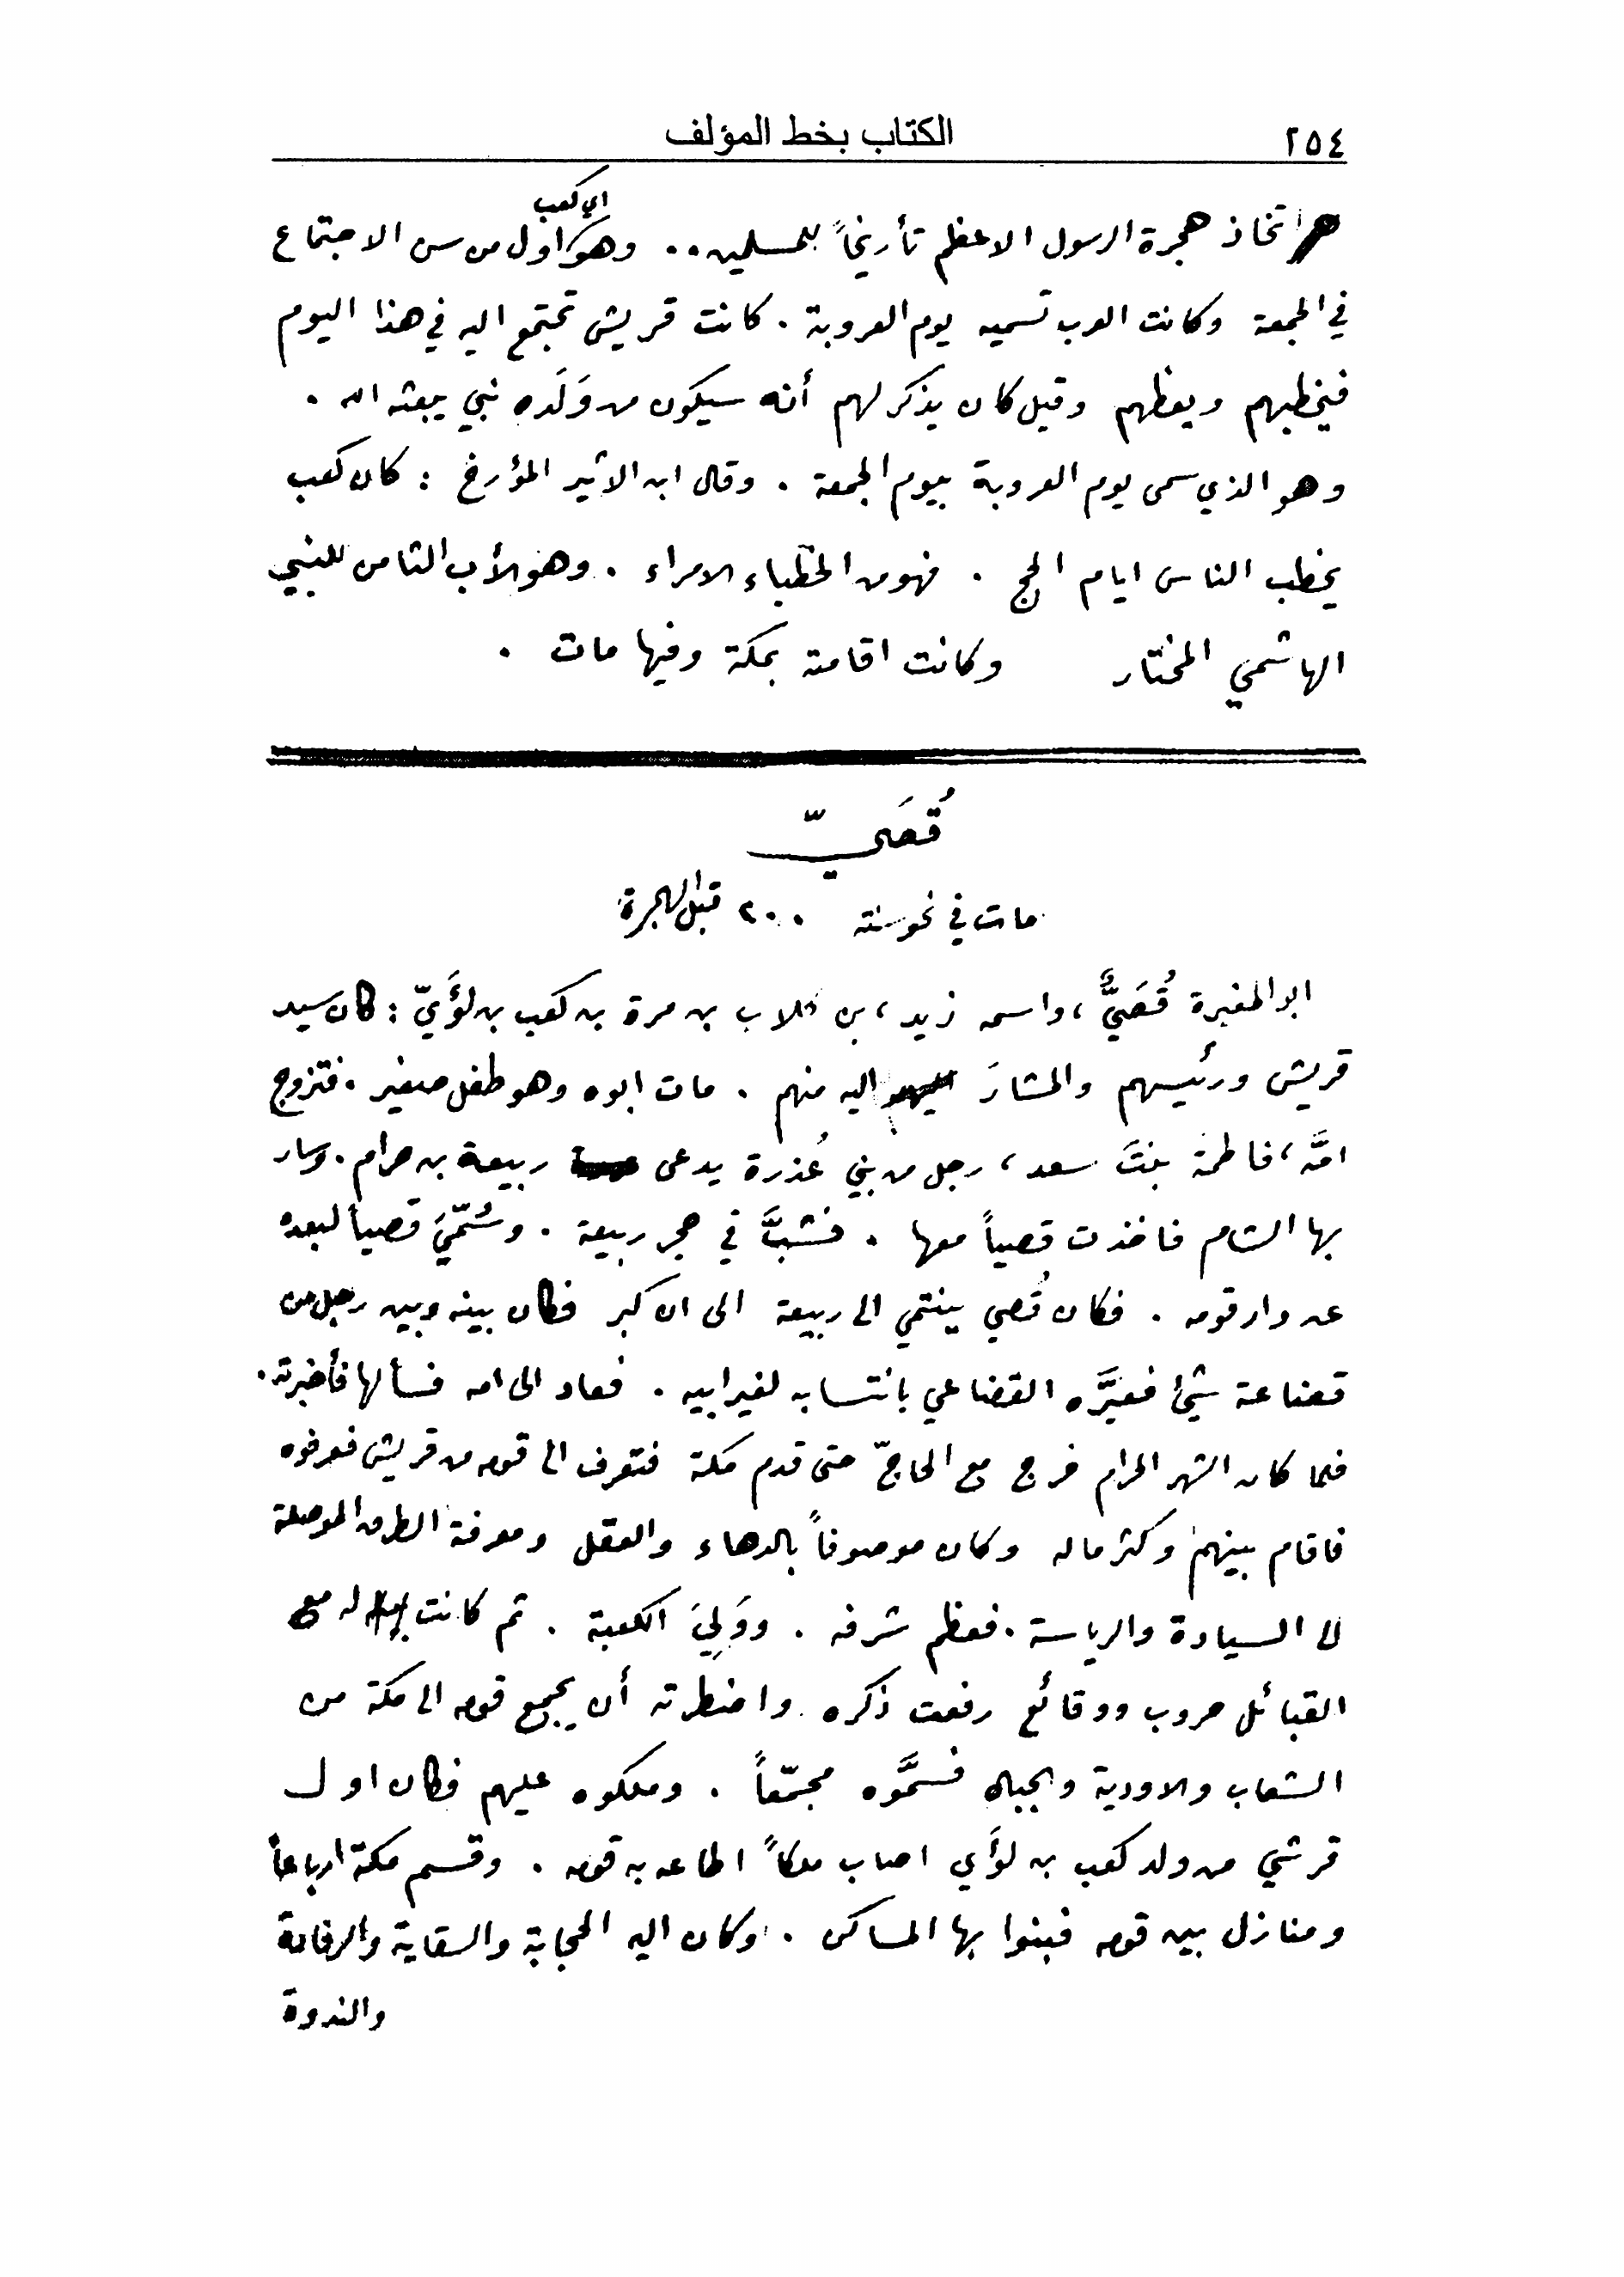 ٢٥٤ الكتاب بخط المؤلف
اي كعب
اتخاذ هجرة الرسول الاعظم تأريخاً للمسلمين .. وهو اول من سن الاجتماع
في الجمعة وكانت العرب تسميه يوم العروبة . كانت قريش تجتمع اليه في هذا اليوم
فيخطبهم ويعظهم وقيل كان يذكر لهم أنه سيكون من وَلَده نبي يبعثه الله .
وهو الذي سمى يوم العروبة بيوم الجمعة . وقال ابن الاثير المؤرخ : كان كعب
يخطب الناس ايام الحج . فهو من الخطباء الامراء . وهو الأب الثامن للنبي
الهاشمي المختار وكانت اقامته بمكة وفيها مات .
قُصَيّ
مات في نحو سنة ٢٠٠ قبل الهجرة
ابو المغيرة قُصَيٌّ ، واسمه زيد ، بن كلاب بن مرة بن كعب بن لؤَيّ : كان سيد
قريش ورئيسهم والمشارَ اليه منهم . مات ابوه وهو طفل صغير . فتزوج
امَّه ، فاطمة بنتَ سعد ، رجل من بني عُذرة يدعى ربيعة بن حرام . وسار
بها الشام فاخذت قصياً معها . فشبَّ في حجر ربيعة . وسُمّيَ قصياً لبعده
عن دار قومه . فكان قُصي ينتمي الى ربيعة الى ان كبر فكان بينه وبين رجل من
قضاعة شيئ فعيَّره القضاعي بانتسابه لغير ابيه . فعاد الى امه فسألها فأخبرته .
فلما كان الشهر الحرام خرج مع الحاجّ حتى قدم مكة فتعرف الى قومه من قريش فعرفوه
فاقام بينهم وكثر ماله وكان موصوفاً بالدهاء والعقل ومعرفة الطرق الموصلة
الى السيادة والرياسة . فعظم شرفه . ووَلِيَ الكعبة . ثم كانت له مع
القبائل حروب ووقائع رفعت ذكره واضطرته أن يجمع قومه الى مكة من
الشعاب والاودية والجبال فسمَّوه مجمّعاً . وملكوه عليهم فكان اول
قرشي من ولد كعب بن لؤَي اصاب ملكاً اطاعه به قومه . وقسم مكة ارباعاً
ومنازل بين قومه فبنوا بها المساكن . وكان اليه الحجابة والسقاية والرفادة
والندوة